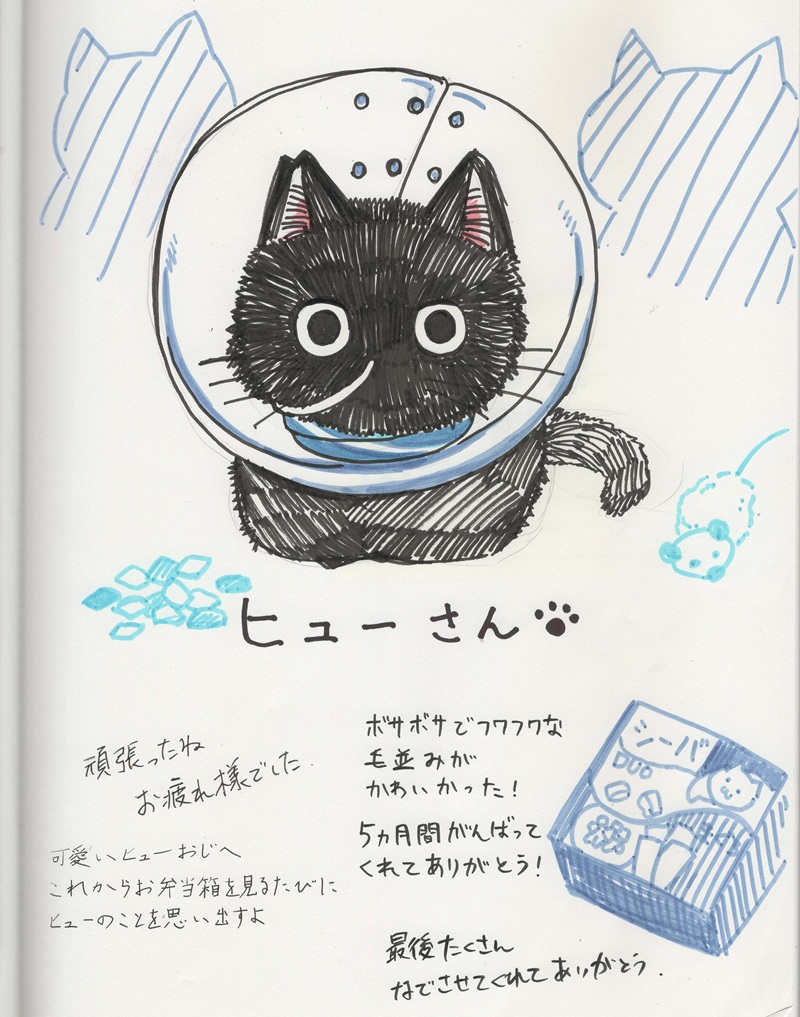 ヒューさん
頑張ったね
お疲れ様でした.
可愛いヒューおじへ
これからお弁当箱を見るたびに
ヒューのことを思い出すよ
ボサボサでフワフワな
毛並みが
かわいかった!
5ヵ月間がんばって
くれてありがとう!
シーバ
最後たくさん
なでさせてくれてありがとう.